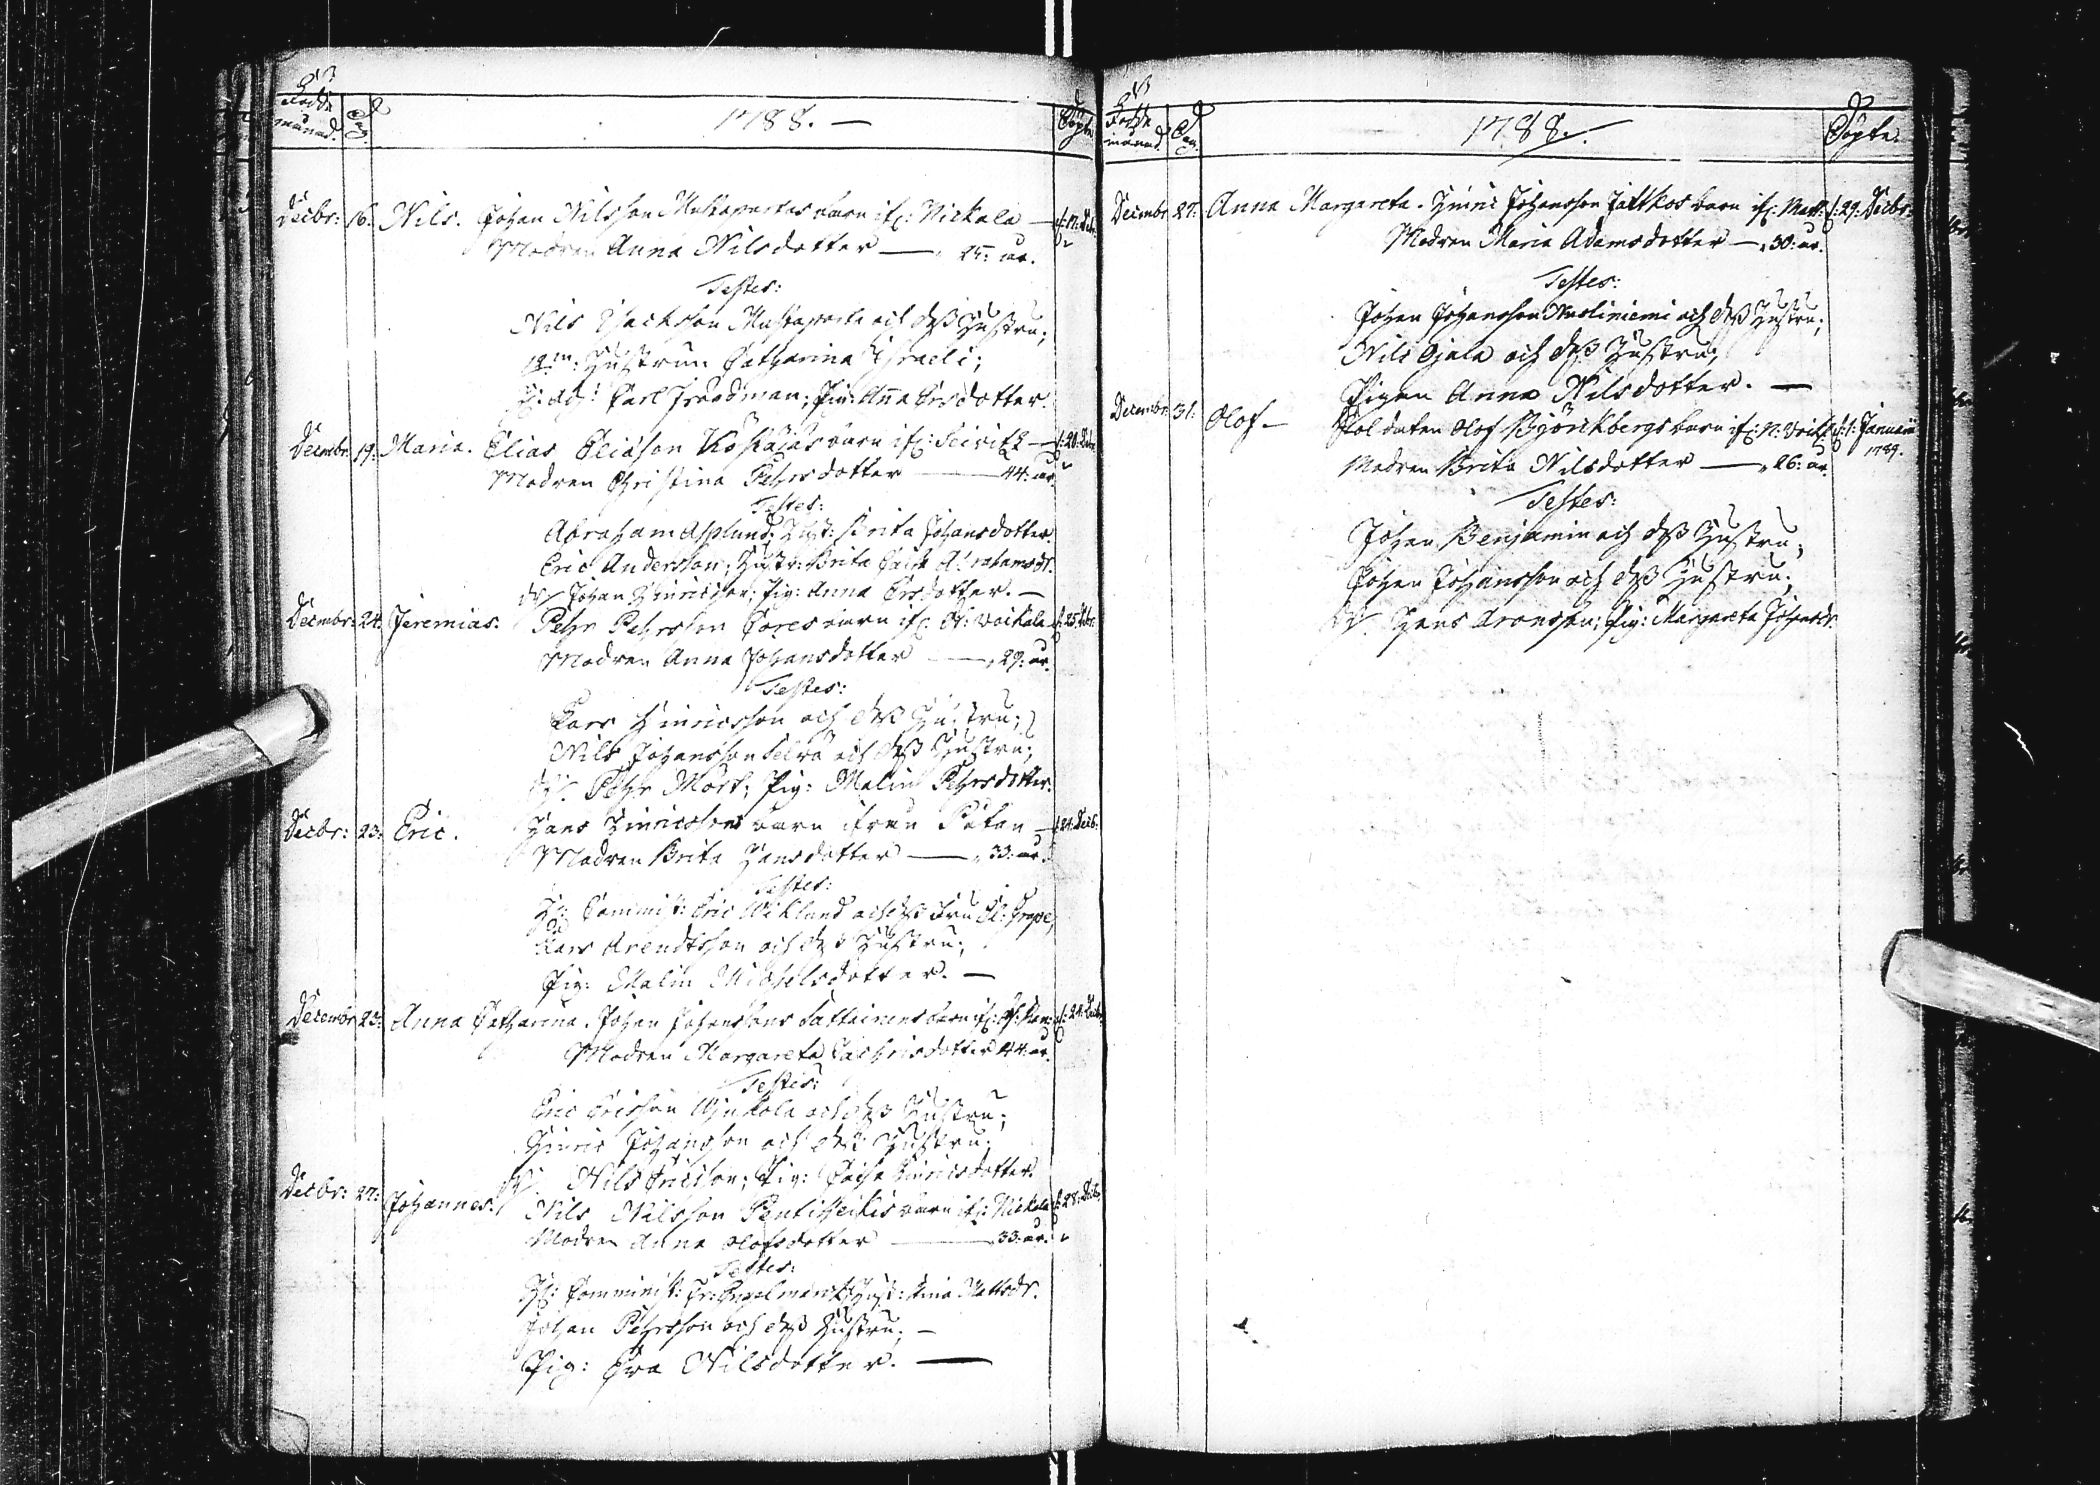 Födde månad. Dag. 1788. — Döpte
Decbr: 16. Nils. Johan Nilsson Mustaparta barn if: Nickala — d: 17: Decbr
Modren Anna Nilsdotter — 25: år.
Testes:
Nils Isacksson Mustaparta och dess Hustru;
Hustrun Catharina Israeli;
Carl Frodman; Pig: Anna Ersdotter.
Decembr. 19: Maria. Elias Eliæson Koskajas barn if: Seivitz — d: 20: Decbr
Modren Christina Pehrsdotter — 44: år.
Testes:
Abraham Asplund; Hust: Brita Johansdotter.
Eric Andersson; Hustr: Brita Cajsa Abrahamsdr.
Dr: Johan Hinricsson; Pig: Anna Ersdotter. —
Decembr: 24. Jeremias. Pehr Pehrsson Lares barn if: N: Woikala d: 25: Decbr.
Modren Anna Johansdotter — 29: år.
Testes:
Lars Hinricsson och dess Hustru;
Nils Johansson och dess Hustru;
Dr: Pehr Mört; Pig: Malin Pehrsdotter.
Decbr: 23: Eric. Hans Hinricssons barn ifrån — d: 24: Decb:
Modren Brita Hansdotter — 33: år.
Testes:
Hr: Commist: Eric Wiklund och dess Fru El: Grape,
Lars Arendtsson och dess Hustru;
Pig: Malin Michelsdotter. —
Decembr 23: Anna Catharina. Johan Johanssons barn if: d: 24: Decbr
Modren Margareta Zachrisdotter 44: år.
Testes:
Eric Ericsson och dess Hustru;
Hinric Johansson och dess Hustru;
Dr: Nils Ericsson; Pig: Cajsa Hinricsdotter.
Decbr: 27: Johannes. Nils Nilsson Pentiheikis barn if: Nickala d: 28: Decb
Modren Anna Olofsdotter — 33: år.
Testes:
Hr: Comminist: Engelmark Hust: Anna Mattsdr.
Johan Pehrsson och dess Hustru; —
Pig: Eva Nilsdotter. —
Födde månad. Dag. 1788. Döpte.
Decembr. 27: Anna Margareta. Hinric Johansson Jättkos barn if: Matt: d: 29: Decbr:
Modren Maria Adamsdotter — 30: år.
Testes:
Johan Johansson Kusiniemi och dess Hustru;
Nils Ojala och dess Hustru;
Pigan Anna Nilsdotter. —
Decembr: 31: Olof — Soldaten Olof Björckbergs barn if: N: Voik: d: 1: Januarii
1789.
Modren Brita Nilsdotter — 26: år.
Testes:
Johan Benjamin och dess Hustru;
Johan Johansson och dess Hustru;
Dr: Hans Aronsson; Pig: Margareta Johansdr.